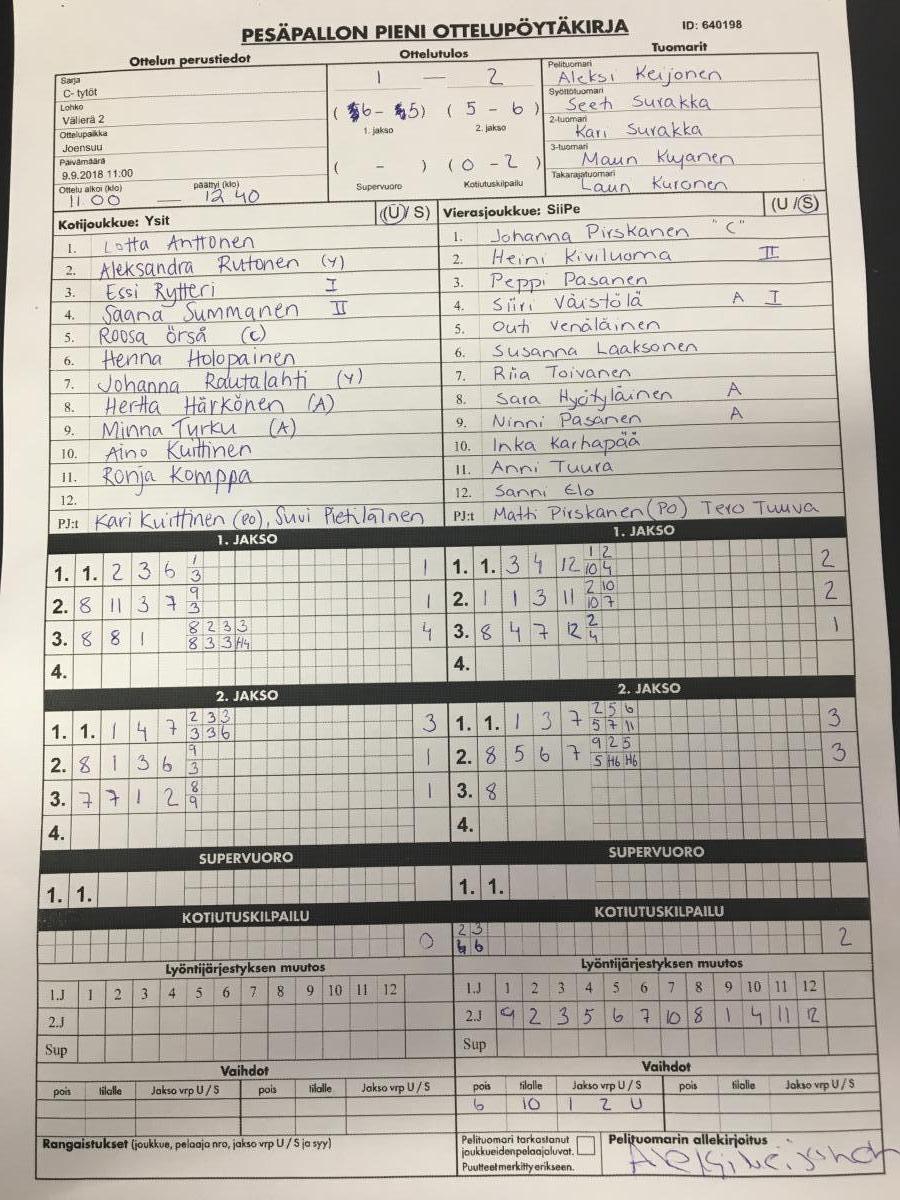 PESÄPALLON PIENI OTTELUPÖYTÄKIRJA
ID: 640198
Ottelun perustiedot
Sarja
C- tytöt
Lohko
Välierä 2
Ottelupaikka
Joensuu
Päivämäärä
9.9.2018 11:00
Ottelu alkoi (klo) päättyi (klo)
11.00 — 12 40
Ottelutulos
1 — 2
( 6 - 5) ( 5 - 6 )
1. jakso 2. jakso
( - ) ( 0 - 2 )
Supervuoro Kotiutuskilpailu
Tuomarit
Pelituomari
Aleksi Keijonen
Syöttötuomari
Surakka
2-tuomari
Kari Surakka
3-tuomari
Maun Kujanen
Takarajatuomari
Laun Kuronen
Kotijoukkue: Ysit (U/ S)
1. Lotta Anttonen
2. Aleksandra Rutonen (Y)
3. Essi Rytteri I
4. Saana Summanen II
5. Roosa Örså (C)
6. Henna Holopainen
7. Johanna Rautalahti (Y)
8. Hertta Härkönen (A)
9. Minna Turku (A)
10. Aino Kuittinen
11. Ronja Komppa
12.
PJ:t Kari Kuittinen (PO), Suvi Pietiläinen
Vierasjoukkue: SiiPe (U /S)
1. Johanna Pirskanen "C"
2. Heini Kiviluoma II
3. Peppi Pasanen
4. Siiri Väistölä A I
5. Outi Venäläinen
6. Susanna Laaksonen
7. Riia Toivanen
8. Sara A
9. Ninni Pasanen A
10. Inka Karhapää
11. Anni Tuura
12. Sanni Elo
PJ:t Matti Pirskanen (PO) Tero Tuuva
1. JAKSO
1. 1. 2 3 6 1 1
3
2. 8 11 3 7 9 1
3
3. 8 8 1 8 2 3 3 4
8 3 3 H4
4.
1. JAKSO
1. 1. 3 4 12 1 2 2
10 4
2. 1 1 3 11 2 10 2
10 7
3. 8 4 7 12 2 1
4
4.
2. JAKSO
1. 1. 1 4 7 2 3 3 3
3 3 6
2. 8 1 3 6 9 1
3
3. 7 7 1 2 8 1
9
4.
2. JAKSO
1. 1. 1 3 7 2 5 6 3
5 7 11
2. 8 5 6 7 9 2 5 3
5 H6 H6
3. 8
4.
SUPERVUORO
1. 1.
SUPERVUORO
1. 1.
KOTIUTUSKILPAILU
0
KOTIUTUSKILPAILU
2 3 2
4 6
Lyöntijärjestyksen muutos
1.J 1 2 3 4 5 6 7 8 9 10 11 12
2.J
Sup
Lyöntijärjestyksen muutos
1.J 1 2 3 4 5 6 7 8 9 10 11 12
2.J 9 2 3 5 6 7 10 8 1 4 11 12
Sup
Vaihdot
pois tilalle Jakso vrp U / S pois tilalle Jakso vrp U / S
Vaihdot
pois tilalle Jakso vrp U / S pois tilalle Jakso vrp U / S
6 10 1 2 U
Rangaistukset (joukkue, pelaaja nro, jakso vrp U / S ja syy)
Pelituomari tarkastanut
joukkueidenpelaajaluvat.
Puutteet merkitty erikseen.
Pelituomarin allekirjoitus